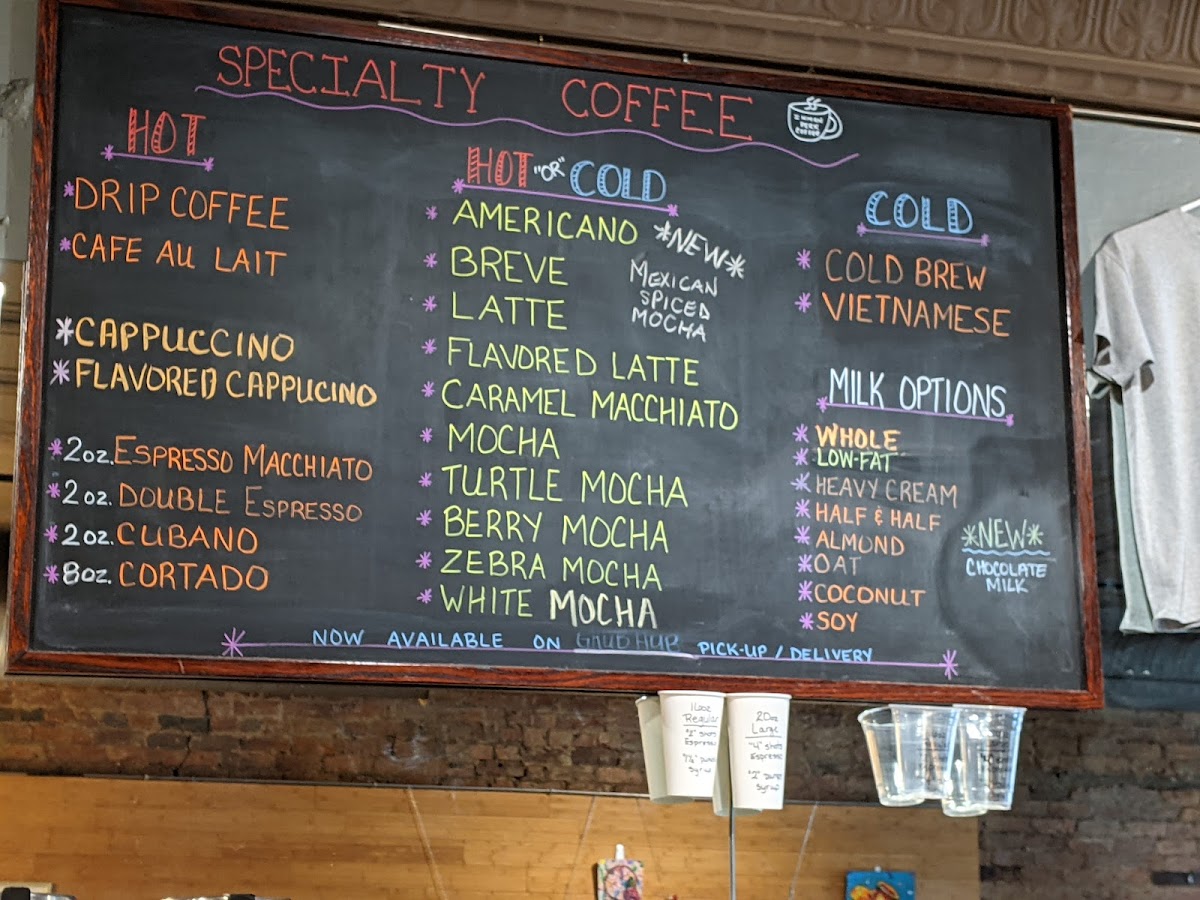 SPECIALTY COFFEE
HOT
*DRIP COFFEE
*CAFE AU LAIT
*CAPPUCCINO
*FLAVORED CAPPUCINO
*2oz. ESPRESSO MACCHIATO
*2oz. DOUBLE ESPRESSO
*2oz. CUBANO
*8oz. CORTADO
HOT "OR" COLD
*AMERICANO
*BREVE
*LATTE
*FLAVORED LATTE
*CARAMEL MACCHIATO
*MOCHA
*TURTLE MOCHA
*BERRY MOCHA
*ZEBRA MOCHA
*WHITE MOCHA
*NEW*
MEXICAN
SPICED
MOCHA
COLD
*COLD BREW
*VIETNAMESE
MILK OPTIONS
*WHOLE
*LOW-FAT
*HEAVY CREAM
*HALF & HALF
*ALMOND
*OAT
*COCONUT
*SOY
*NEW*
CHOCOLATE
MILK
NOW AVAILABLE ON GRUBHUB PICK-UP / DELIVERY
16oz
Regular
"2" shots
Espresso
syrup
20oz
Large
"4" shots
Espresso
syrup